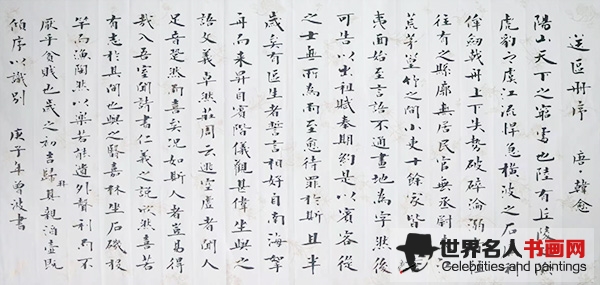 送區冊序 唐·韓愈
陽山天下之窮處也陸有丘陵之險
虎豹之虞江流悍急橫波之石廉利
侔劍戟舟上下失勢破碎淪溺
往有之縣郭無居民官無丞尉
荒茅篁竹之間小吏十餘家皆
夷面始至言語不通畫地為字然後
可告以出租賦奉期約是以賓客從
之士無所為而至愈待罪於斯且半
歲矣有區生者誓言相好自南海挐
舟而來昇自賓階儀觀甚偉坐與之
語文義卓然莊周云逃空虛者聞人
足音跫然而喜矣況如斯人者豈易得
哉入吾室聞詩書仁義之說欣然喜若
有志於其間也與之翳嘉林坐石磯投
竿而漁陶然以樂若能遺外聲利而不
厭乎貧賤也歲之初吉歸拜其親酒壺既
傾序以識別 庚子年曾波書
世界名人书画网
Celebrities and paintings